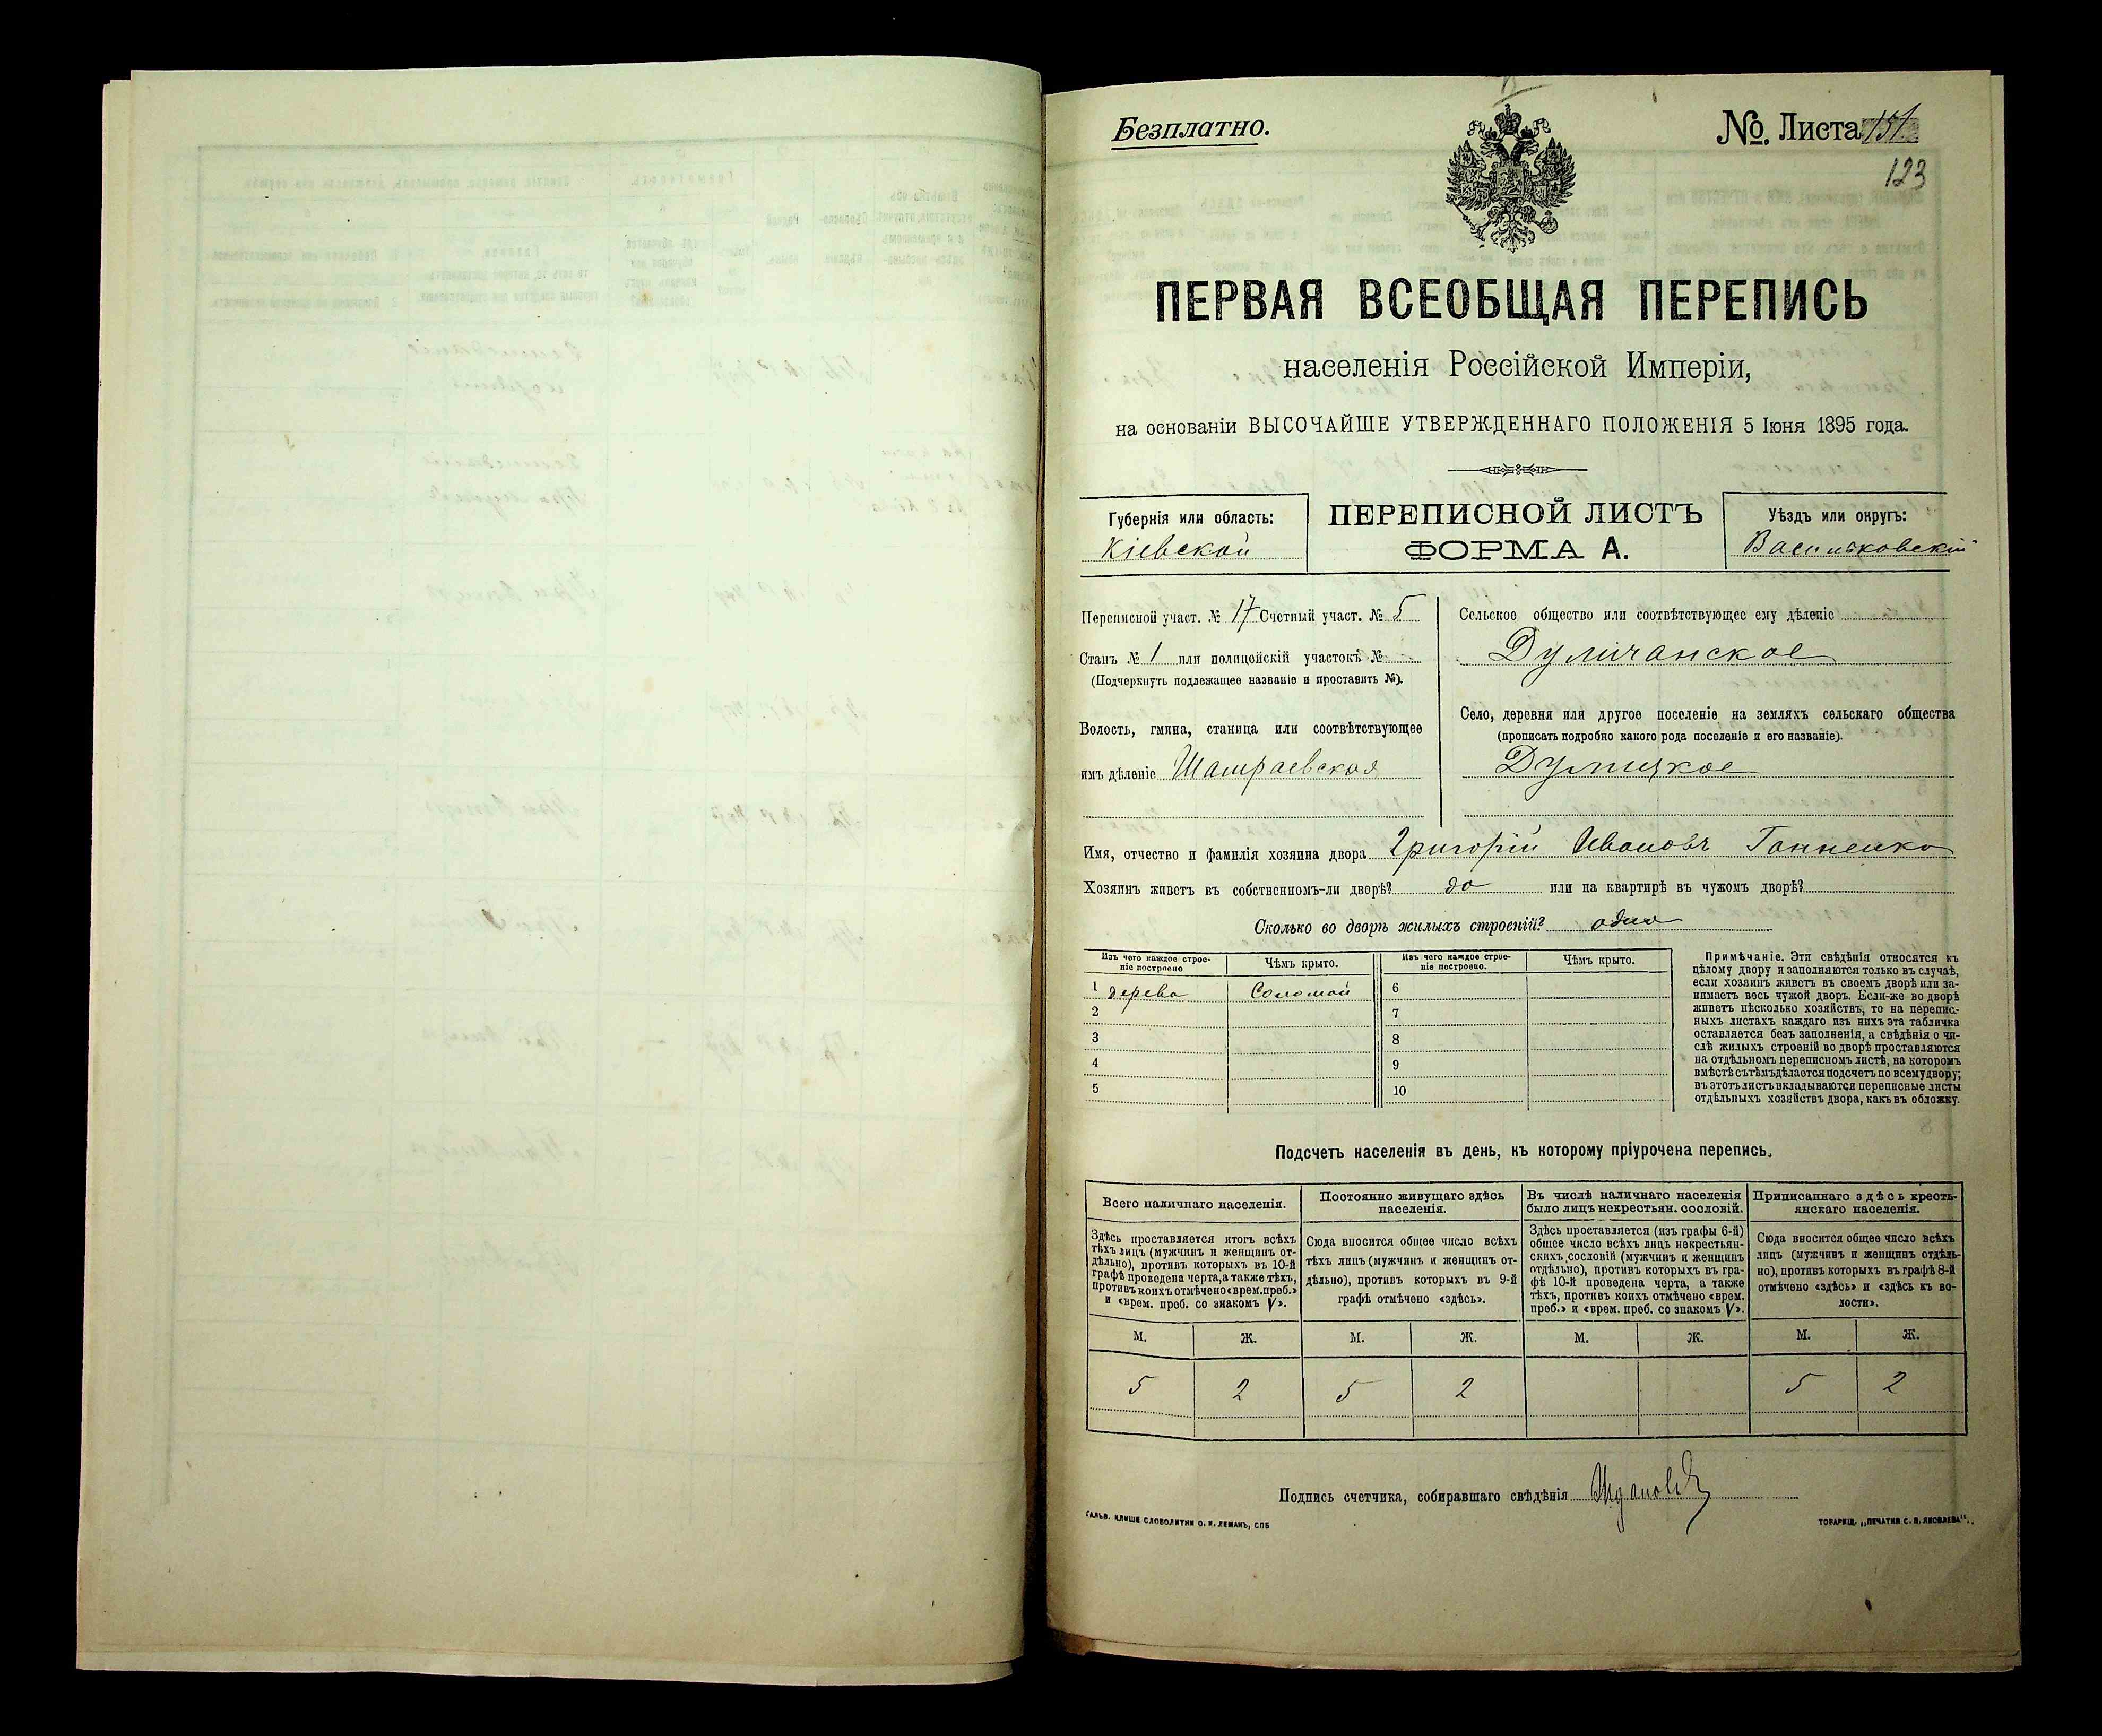 Безплатно.
№ Листа 151
123
ПЕРВАЯ ВСЕОБЩАЯ ПЕРЕПИСЬ
населенія Россійской Имперіи,
на основаніи ВЫСОЧАЙШЕ УТВЕРЖДЕННАГО ПОЛОЖЕНІЯ 5 Іюня 1895 года.
Губернія или область:
Кіевской
ПЕРЕПИСНОЙ ЛИСТЪ
ФОРМА А.
Уѣздъ или округъ:
Васильковскій
Переписной участ. № 17 Счетный участ. № 5
Станъ № 1 или полицейскій участокъ №
(Подчеркнуть подлежащее названіе и проставить №).
Волость, гмина, станица или соотвѣтствующее
имъ дѣленіе Шамраевская
Сельское общество или соотвѣтствующее ему дѣленіе
Дуличанское
Село, деревня или другое поселеніе на земляхъ сельскаго общества
(прописать подробно какого рода поселеніе и его названіе).
Дулицкое
Имя, отчество и фамилія хозяина двора Григорій Ивановъ
Хозяинъ живетъ въ собственномъ-ли дворѣ? да или на квартирѣ въ чужомъ дворѣ?
Сколько во дворѣ жилыхъ строеній? одно
Изъ чего каждое строе-
ніе построено
Чѣмъ крыто.
Изъ чего каждое строе-
ніе построено.
Чѣмъ крыто.
1 дерева Соломой 6
2 7
3 8
4 9
5 10
Примѣчаніе. Эти свѣдѣнія относятся къ
цѣлому двору и заполняются только въ случаѣ,
если хозяинъ живетъ въ своемъ дворѣ или за-
нимаетъ весь чужой дворъ. Если-же во дворѣ
живетъ нѣсколько хозяйствъ, то на перепис-
ныхъ листахъ каждаго изъ нихъ эта табличка
оставляется безъ заполненія, а свѣдѣнія о чи-
слѣ жилыхъ строеній во дворѣ проставляются
на отдѣльномъ переписномъ листѣ, на которомъ
вмѣстѣ съ тѣмъ дѣлается подсчетъ по всему двору;
въ этотъ листъ вкладываются переписные листы
отдѣльныхъ хозяйствъ двора, какъ въ обложку.
Подсчетъ населенія въ день, къ которому пріурочена перепись.
Всего наличнаго населенія.
Постоянно живущаго здѣсь
населенія.
Въ числѣ наличнаго населенія
было лицъ некрестьян. сословій.
Приписаннаго здѣсь кресть-
янскаго населенія.
Здѣсь проставляется итогъ всѣхъ
тѣхъ лицъ (мужчинъ и женщинъ от-
дѣльно), противъ которыхъ въ 10-й
графѣ проведена черта, а также тѣхъ,
противъ коихъ отмѣчено «врем. преб.»
и «врем. преб. со знакомъ V».
Сюда вносится общее число всѣхъ
тѣхъ лицъ (мужчинъ и женщинъ от-
дѣльно), противъ которыхъ въ 9-й
графѣ отмѣчено «здѣсь».
Здѣсь проставляется (изъ графы 6-й)
общее число всѣхъ лицъ некрестьян-
скихъ сословій (мужчинъ и женщинъ
отдѣльно), противъ которыхъ въ гра-
фѣ 10-й проведена черта, а также
тѣхъ, противъ коихъ отмѣчено «врем.
преб.» и «врем. преб. со знакомъ V».
Сюда вносится общее число всѣхъ
лицъ (мужчинъ и женщинъ отдѣль-
но), противъ которыхъ въ графѣ 8-й
отмѣчено «здѣсь» и «здѣсь къ во-
лости».
М. Ж. М. Ж. М. Ж. М. Ж.
5 2 5 2 5 2
Подпись счетчика, собиравшаго свѣдѣнія
ГАЛЬВ. КЛИШЕ СЛОВОЛИТНИ О. И. ЛЕМАНЪ, СПБ
ТОВАРИЩ. „ПЕЧАТНЯ С. П. ЯКОВЛЕВА".